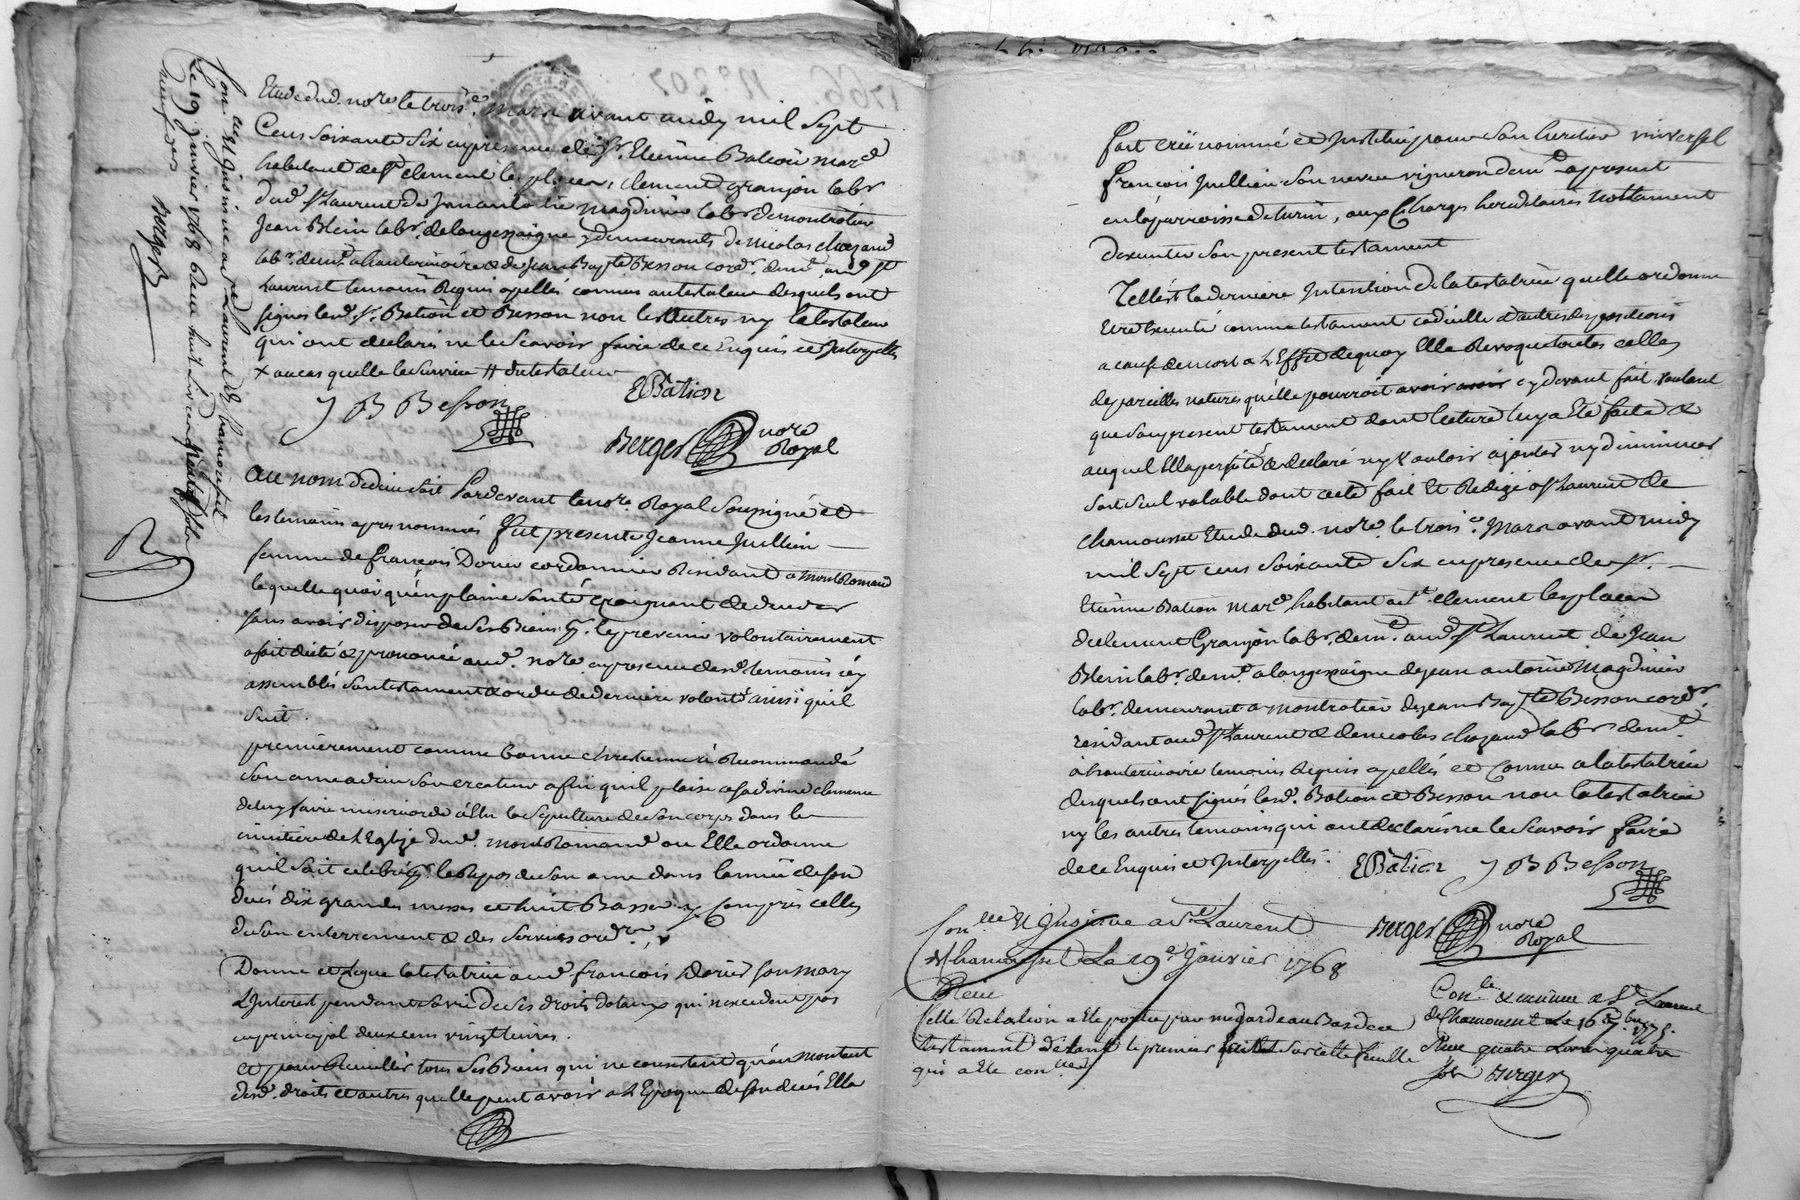 Etude dud. nore. le trois.e mars avant midy mil sept
Cens soixante Six en presence de Sr. Etiènne Bation marcd
habitant de St clement les places, clement granjon labr
dud. St Laurent de Jean antoine magdinier labr. de montrotier
Jean Blein labr. de longessaigne y demeurants de nicolas chazaud
labr. demt. a hauterivoire & de Jean Bapte Besson cordr. demt. aud St
Laurent temoins Requis apellés connus au testateur desquels ont
signés lesd. Sr. Bation et Besson non les Autres ny le testateur
qui ont declarés ne le Scavoir faire de ce Enquis et Interpellés
x au cas quelle le Survive # du testateur
J B Besson
EBation
Berger nore Royal
Au nom de dieu soit Pardevant le nore. Royal Soussigné et
les temoins apres nommés fut presente Jeanne Jullien
femme de françois Dorier cordonnier Residant a montRomand
laquelle quoi qu'en plaine Santé craignant de deceder
sans avoir disposer de ses Biens Et. le prevenir volontairement
a fait dicté & prononcé aud. nore. en presence desd. temoins icy
assemblés Son testament & ordre de derniere volonté ainsi quil
Suit.
premièrement comme bonne chrestienne à Recommandé
Son ame a dieu Son createur afin quil plaise a sa divine clemence
de luy faire misericorde élu la Sepulture de Son corps dans le
cimitière de l'Eglise dud. montRomand ou Elle ordonne
quil soit celebré le Repos de Son ame dans lannée de son
decés dix grandes messes et huit Basses y Compris celles
de Son enterrement & des Services ordres
Donne et Legue la testatrice aud françois Dorier Son mary
L'Interest pendant Sa vie de Ses droits dotaux qui n'excedent pas
en principal deux cens vingt livres.
et pour Recueillir tous Ses Biens qui ne consistent qu'au montant
desd. droits et autres quelle peut avoir a L'Epoque de Son decés Elle
Con.lee Et Insinué a St Laurent de Chamousset
Le 19 Janvier 1768 Receu
Berger
fait créé nommé et Institué pour Son heritier universel
françois Jullien Son neveu vigneron demt apresent
en la parroisse de turin, aux Charges hereditaires nottament
dexecuter Son present testament
Telle est la derniere Intention de la testatrice quelle ordonne
Etre Executé comme testament codicille & autres dispositions
a cause de mort a L'Effet dequoy Elle Revoque toutes celles
de pareilles natures quelle pourroit avoir cy devant fait voulant
que Son present testament dont lecture luy a Eté faite &
auquel Elle a persisté & declaré n'y vouloir ajouter ny diminuer
Soit Seul valable dont acte fait Et Redigé a St Laurent de
Chamousset Etude dud. nore. le trois.e Mars avant midy
mil Sept cens Soixante Six en presence de Sr.
Etiènne Bation marcd habitant a St. clement les places
de clement Granjon labr. demt. aud St Laurent de Jean
Blein labr. demt. a longessaigne de jean antoine Magdinier
labr. demeurant a montrotier de jean Bapte Besson cordr.
résidant aud St Laurent & de nicolas chazaud labr demt.
à hauterivoire temoins Requis apellés et Connus a la testatrice
desquels ont signés lesd. Bation et Besson non la testatrice
ny les autres temoins qui ont declarés ne le Scavoir faire
de ce Enquis et Interpellés.
EBation J B Besson
Berger nore Royal
Con.lee Et Insinué a St Laurent
de Chamousset Le 19.e Janvier 1768
Receu
Cette Relation a Eté portée par megarde au Bas de ce
testament d'étant le premier Sur cette feuille
qui a Eté con.llé
Con.le & insinué a St Laurent
de Chamousset Le 16
Receu quatre Livres quatre
sols Berger